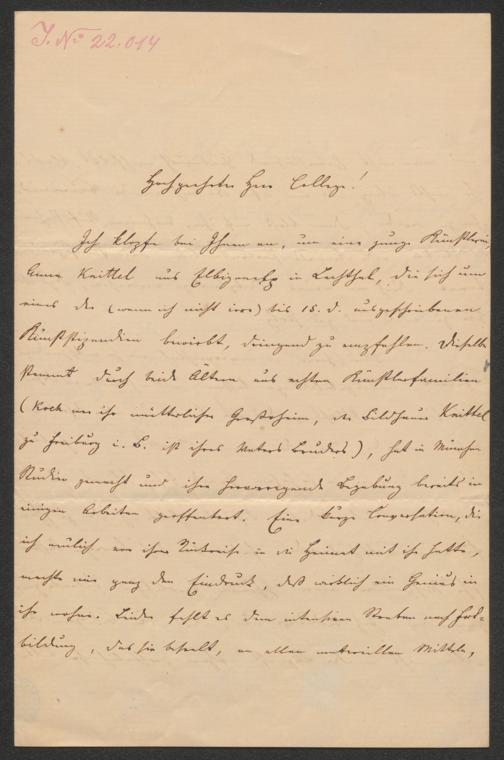 J. No 22.014
Hochgeehrter Herr College!
Ich klopfe bei Ihnen an, um eine junge Künstlerin,
Anna Knittel aus Elbigenalp in Lechthal, die sich um
eines der (wenn ich nicht irre) bis 15. d. ausgeschriebenen
Kunststipendien bewirbt, dringend zu empfehlen. Dieselbe
stammt durch beide Ältern aus echten Künstlerfamilien
(Koch war ihr mütterlicher Großoheim, der Bildhauer Knittel
zu Freiburg i. B. ist ihres Vaters Bruder), hat in München
Studien gemacht und ihre hervorragende Begabung bereits in
einigen Arbeiten geoffenbart. Eine kurze Conversation, die
ich neulich vor ihrer Rückreise in die Heimat mit ihr hatte,
machte mir ganz den Eindruck, daß wirklich ein Genius in
ihr wohne. Leider fehlt es dem intensiven Streben nach Fort-
bildung, das sie beseelt, an allen materiellen Mitteln,